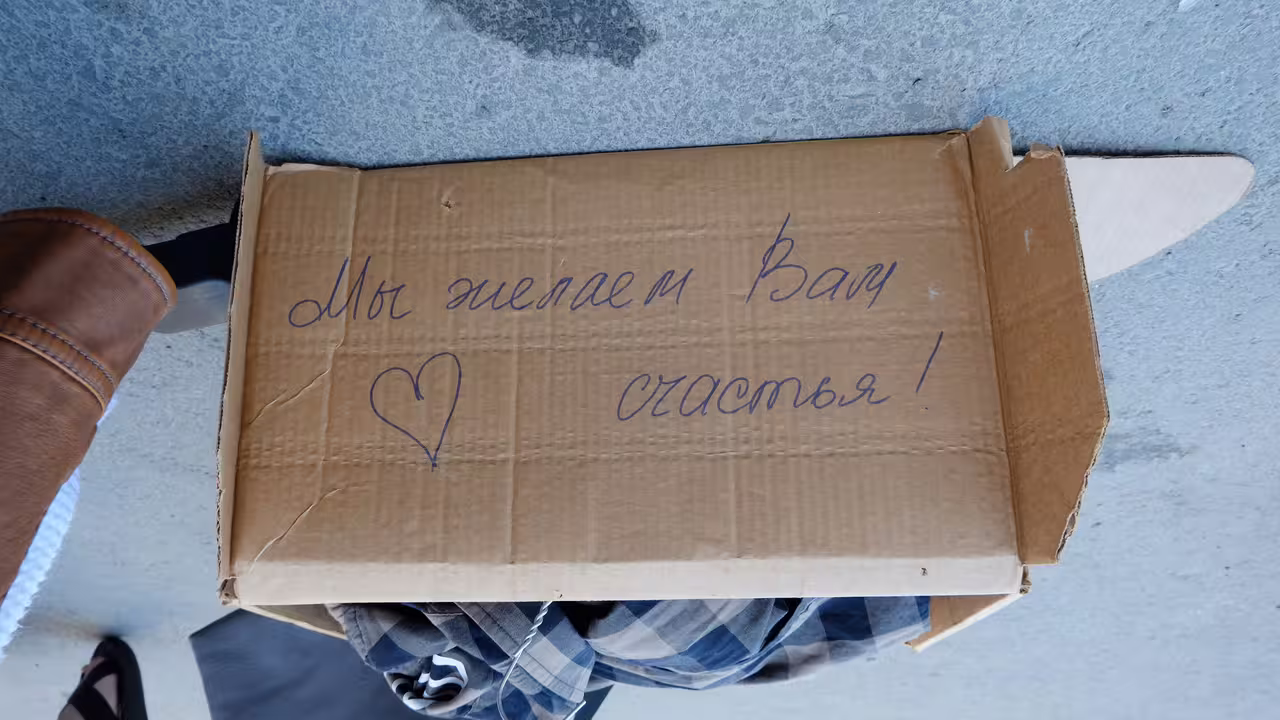 Мы желаем Вам
счастья!